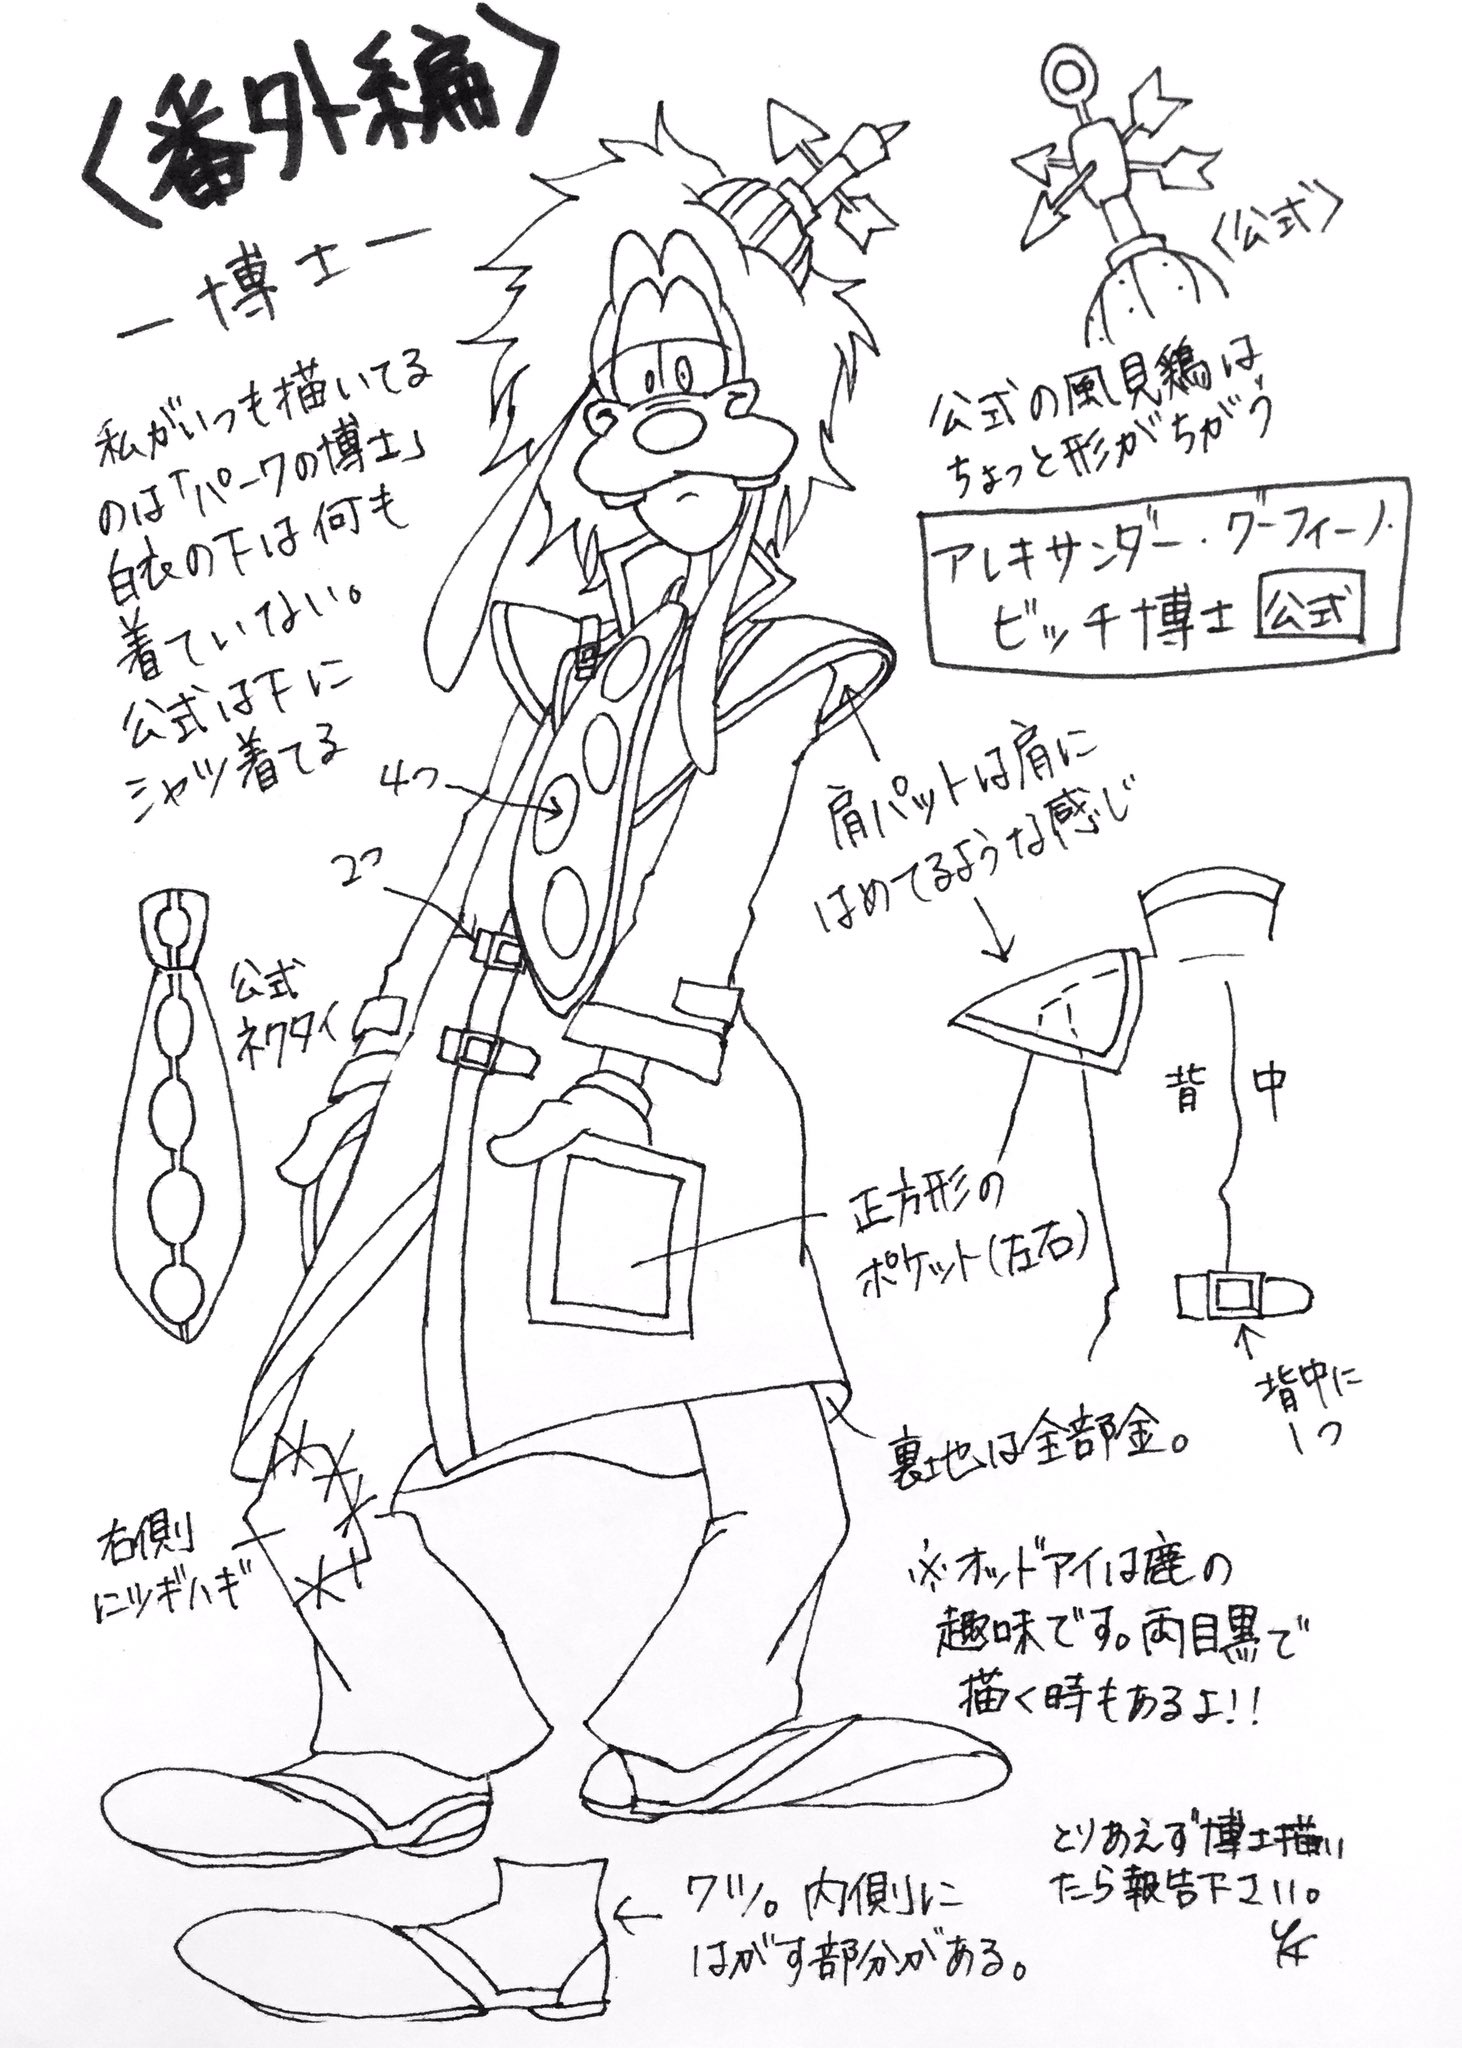 〈番外編〉
－博士－
私がいつも描いてる
のは「パークの博士」
白衣の下は何も
着ていない。
公式は下に
シャツ着てる
〈公式〉
公式の風見鶏は
ちょっと形がちがう
アレキサンダー・グーフィーノ・
ビッチ博士 公式
4つ
2つ
肩パットは肩に
はめてるような感じ
公式
ネクタイ
背中
正方形の
ポケット(左右)
背中に
1つ
裏地は全部金。
右側
にツギハギ
※オッドアイは鹿の
趣味です。両目黒で
描く時もあるよ!!
とりあえず博士描い
たら報告下さい。
クツ。内側に
はがす部分がある。